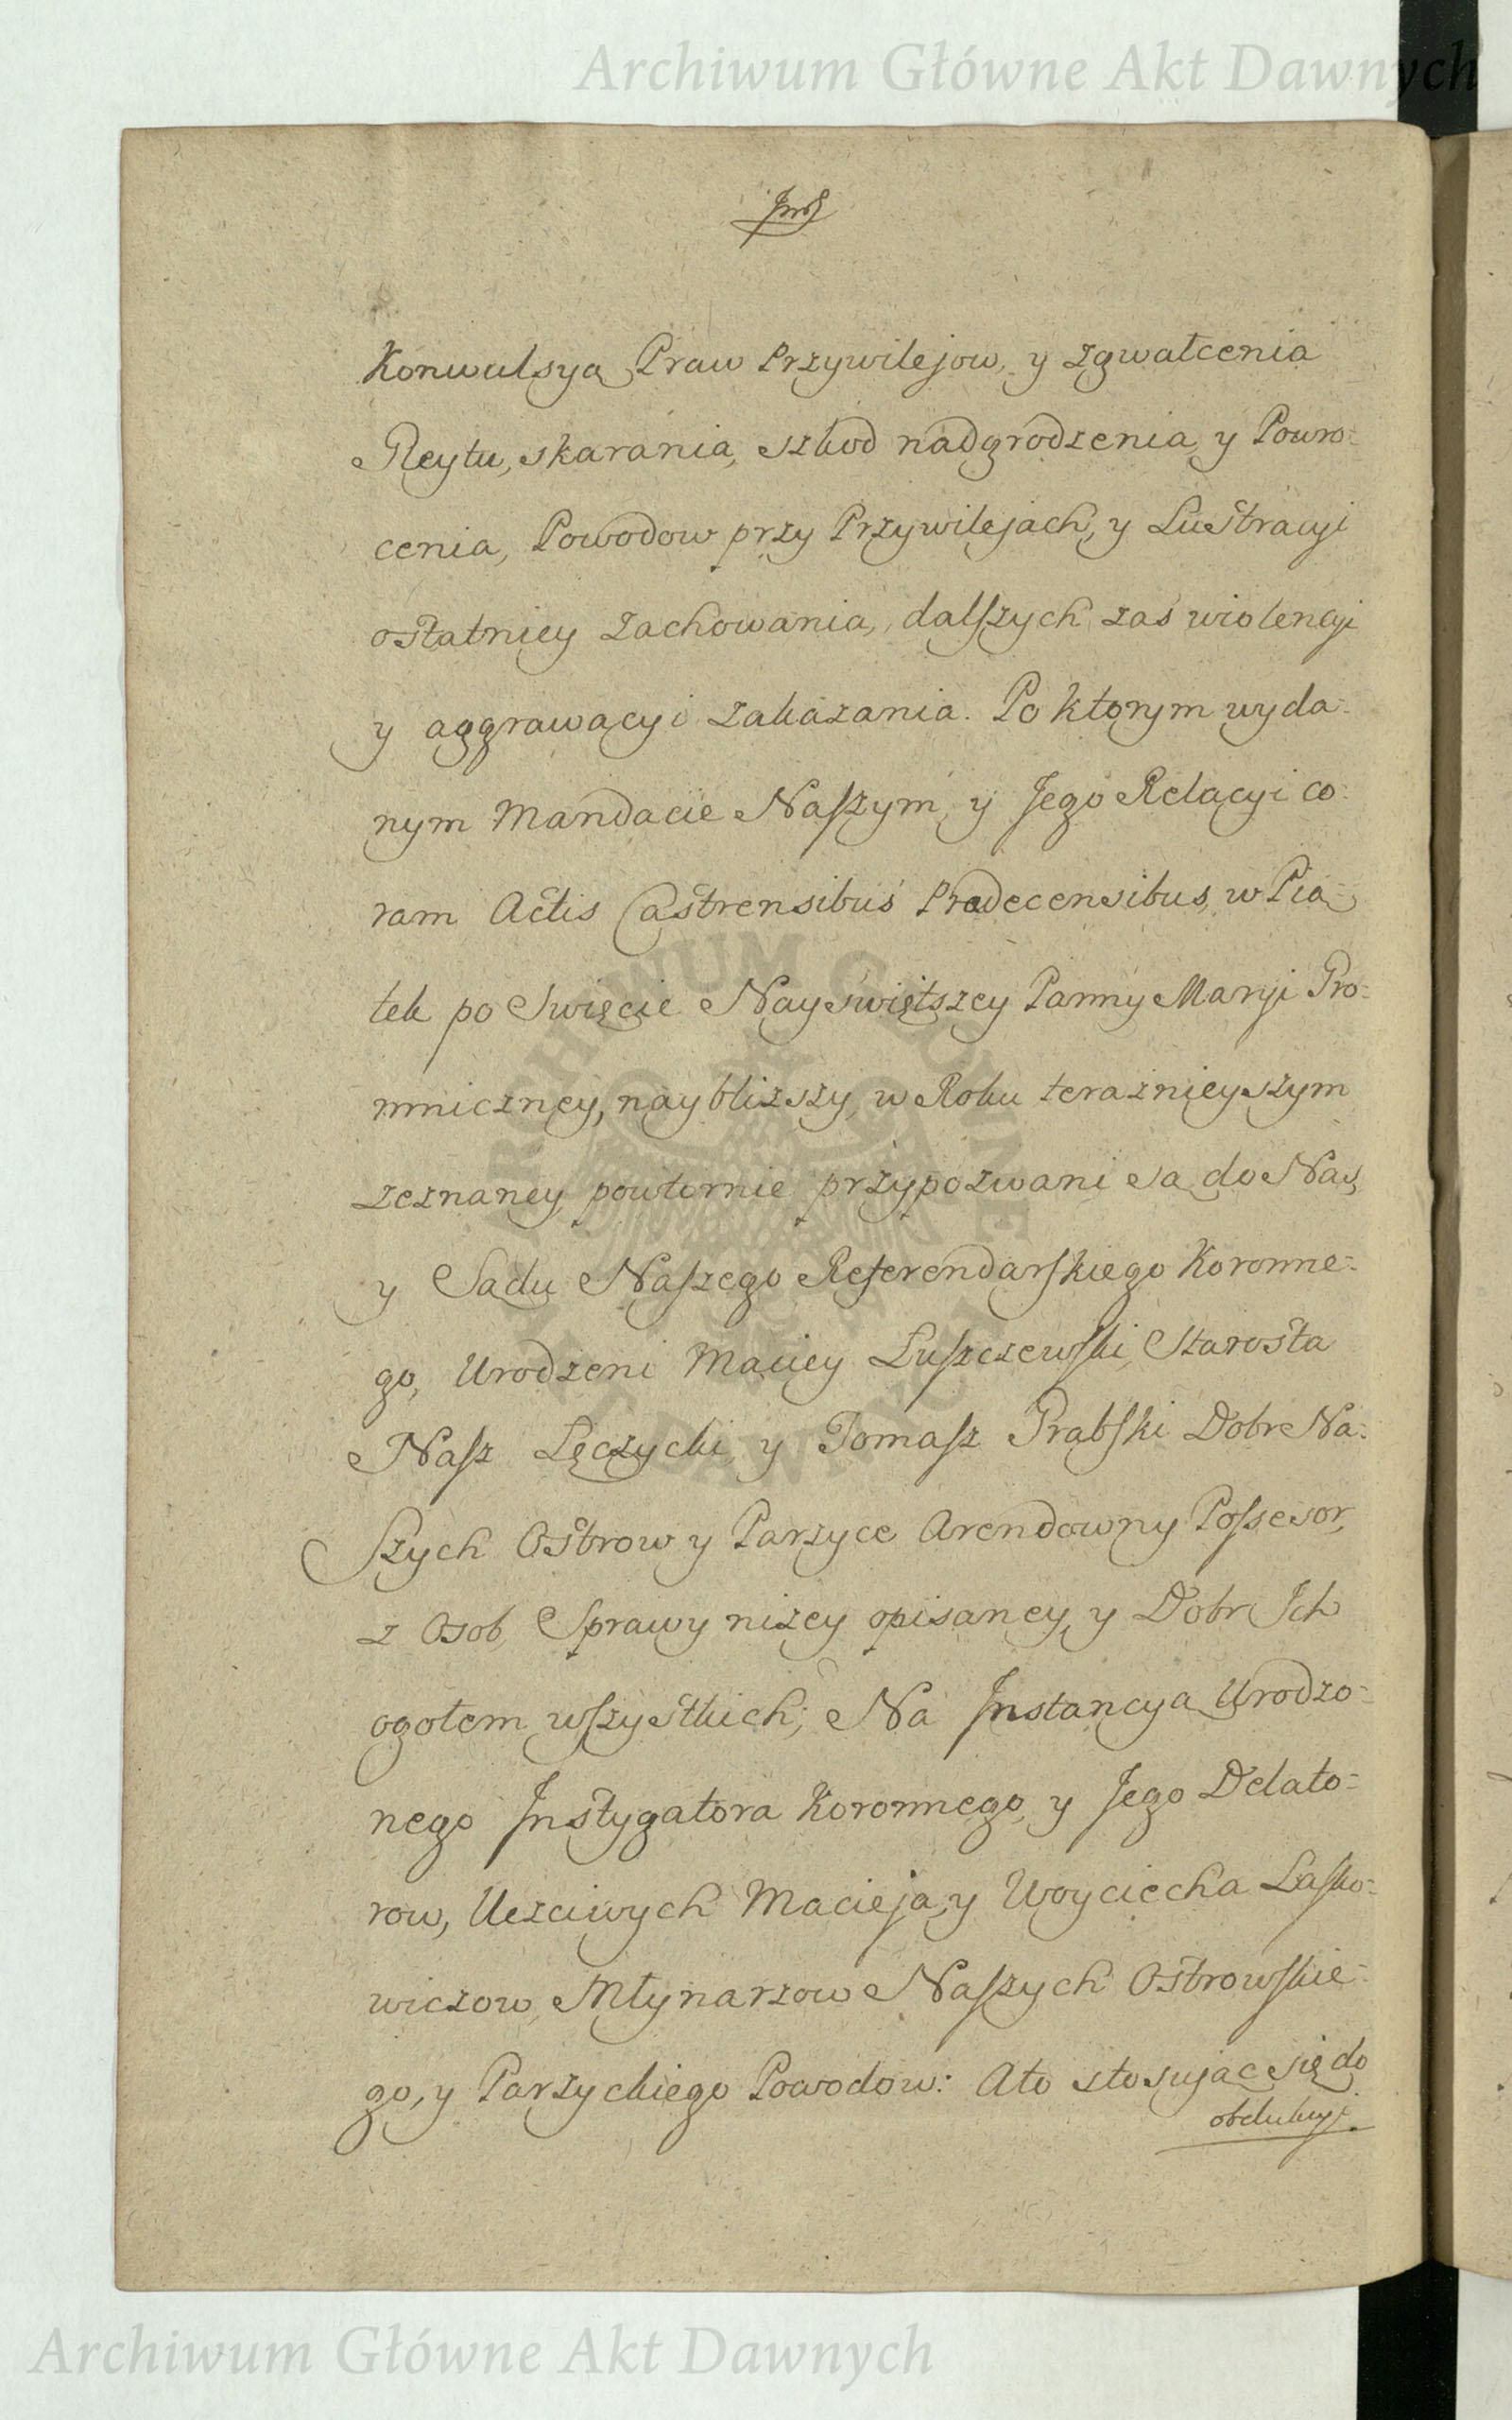 Archiwum Główne Akt Dawnych
Konwulsyą Praw Przywilejow, y zgwałcenia
Gleytu, skarania, szkod nadgrodzenia, y Powro=
cenia, Powodow przy Przywilejach, y Lustracyi
ostatniey zachowania, dalszych zaś wiolencyi
y aggrawacyi zakazania. Po ktorym wyda=
nym Mandacie Naszym, y Jego Relacyi co=
ram Actis Castrensibus Pradecensibus, w Pią=
tek po Swięcie Nayświętszey Panny Maryi Gro=
mniczney, naybliższy, w Roku teraznieyszym
zeznaney powtornie przypozwani są do Nas,
y Sądu Naszego Referendarskiego Koronne=
go, Urodzeni Maciey Luszczewski, Starosta
Nasz Łęczycki y Tomasz Grabski Dobr Na=
szych Ostrow y Parzyce Arendowny Possesor,
z Osob, Sprawy niżey opisaney, y Dobr Ich
ogołem wszystkich; Na Instancyą Urodzo=
nego Instygatora Koronnego, y Jego Delato=
row, Uczciwych Macieja, y Woyciecha Lasko=
wiczow, Młynarzow Naszych Ostrowskie=
go, y Parzyckiego Powodow: Ato stosując się do
obdukcyi
ARCHIWUM GŁÓWNE
AKT DAWNYCH
Archiwum Główne Akt Dawnych